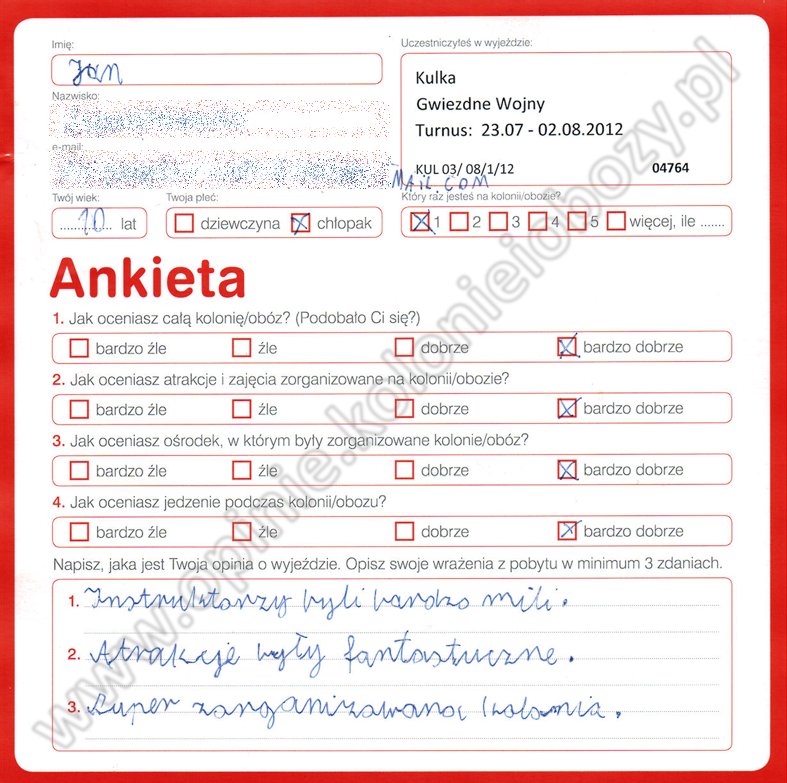 Imię:
Uczestniczyłeś w wyjeździe:
Jan
Kulka
Gwiezdne Wojny
Turnus: 23.07 - 02.08.2012
KUL 03/ 08/1/12 04764
Nazwisko:
e-mail:
MAIL.COM
Twój wiek:
Twoja płeć:
Który raz jesteś na kolonii/obozie?
10 lat
dziewczyna chłopak
1 2 3 4 5 więcej, ile .......
Ankieta
1. Jak oceniasz całą kolonię/obóz? (Podobało Ci się?)
bardzo źle źle dobrze bardzo dobrze
2. Jak oceniasz atrakcje i zajęcia zorganizowane na kolonii/obozie?
bardzo źle źle dobrze bardzo dobrze
3. Jak oceniasz ośrodek, w którym były zorganizowane kolonie/obóz?
bardzo źle źle dobrze bardzo dobrze
4. Jak oceniasz jedzenie podczas kolonii/obozu?
bardzo źle źle dobrze bardzo dobrze
Napisz, jaka jest Twoja opinia o wyjeździe. Opisz swoje wrażenia z pobytu w minimum 3 zdaniach.
1. Instruktorzy byli bardzo mili.
2. Atrakcje były fantastyczne.
3. Super zorganizowana kolonia.
www.opinie.kolonieiobozy.pl